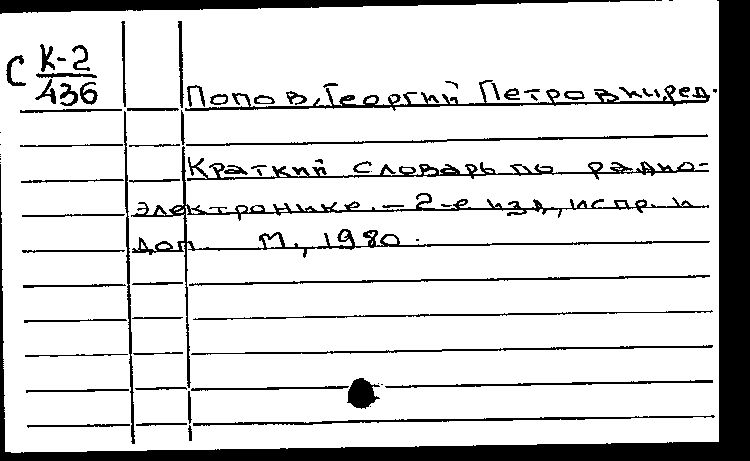 С К-2
436
Попов, Георгий Петрович, ред.
Краткий словарь по радио-
электронике. – 2-е изд., испр. и
доп. М., 1980.